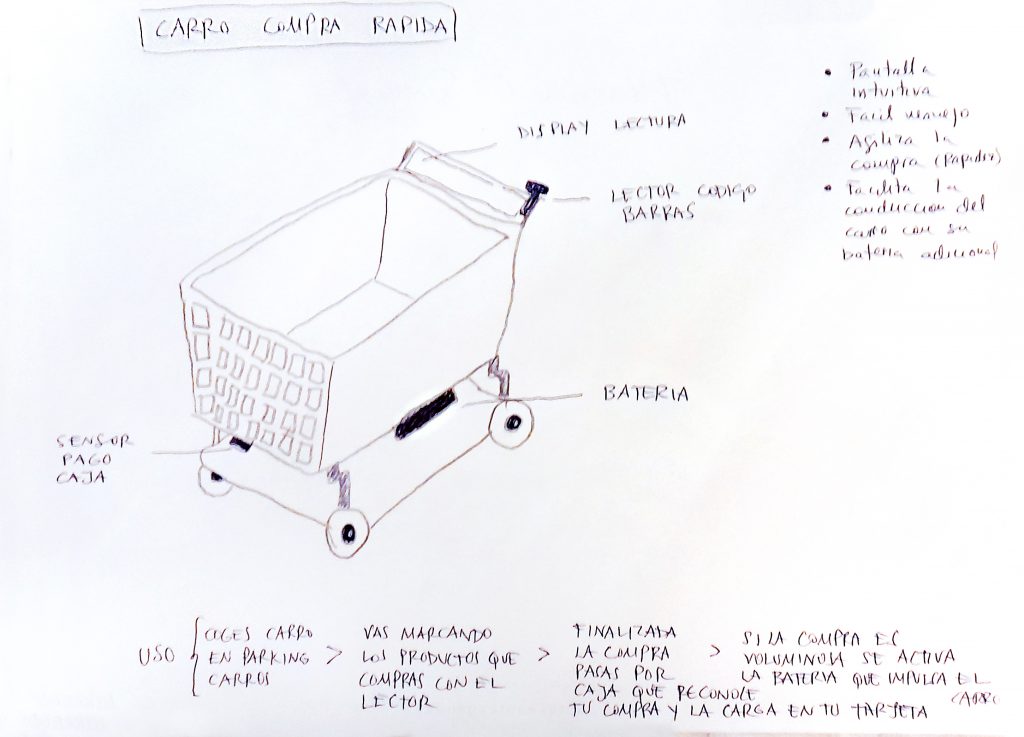 CARRO COMPRA RAPIDA
• Pantalla
intuitiva
• Facil manejo
• Agiliza la
compra (Rapidez)
• Facilita la
conduccion del
carro con su
bateria adicional
DISPLAY LECTURA
LECTOR CODIGO
BARRAS
BATERIA
SENSOR
PAGO
CAJA
USO
COGES CARRO
EN PARKING >
CARROS
VAS MARCANDO
LOS PRODUCTOS QUE >
COMPRAS CON EL
LECTOR
FINALIZADA
LA COMPRA >
PASAS POR
CAJA QUE RECONOCE
TU COMPRA Y LA CARGA EN TU TARJETA
SI LA COMPRA ES
VOLUMINOSA SE ACTIVA
LA BATERIA QUE IMPULSA EL
CARRO